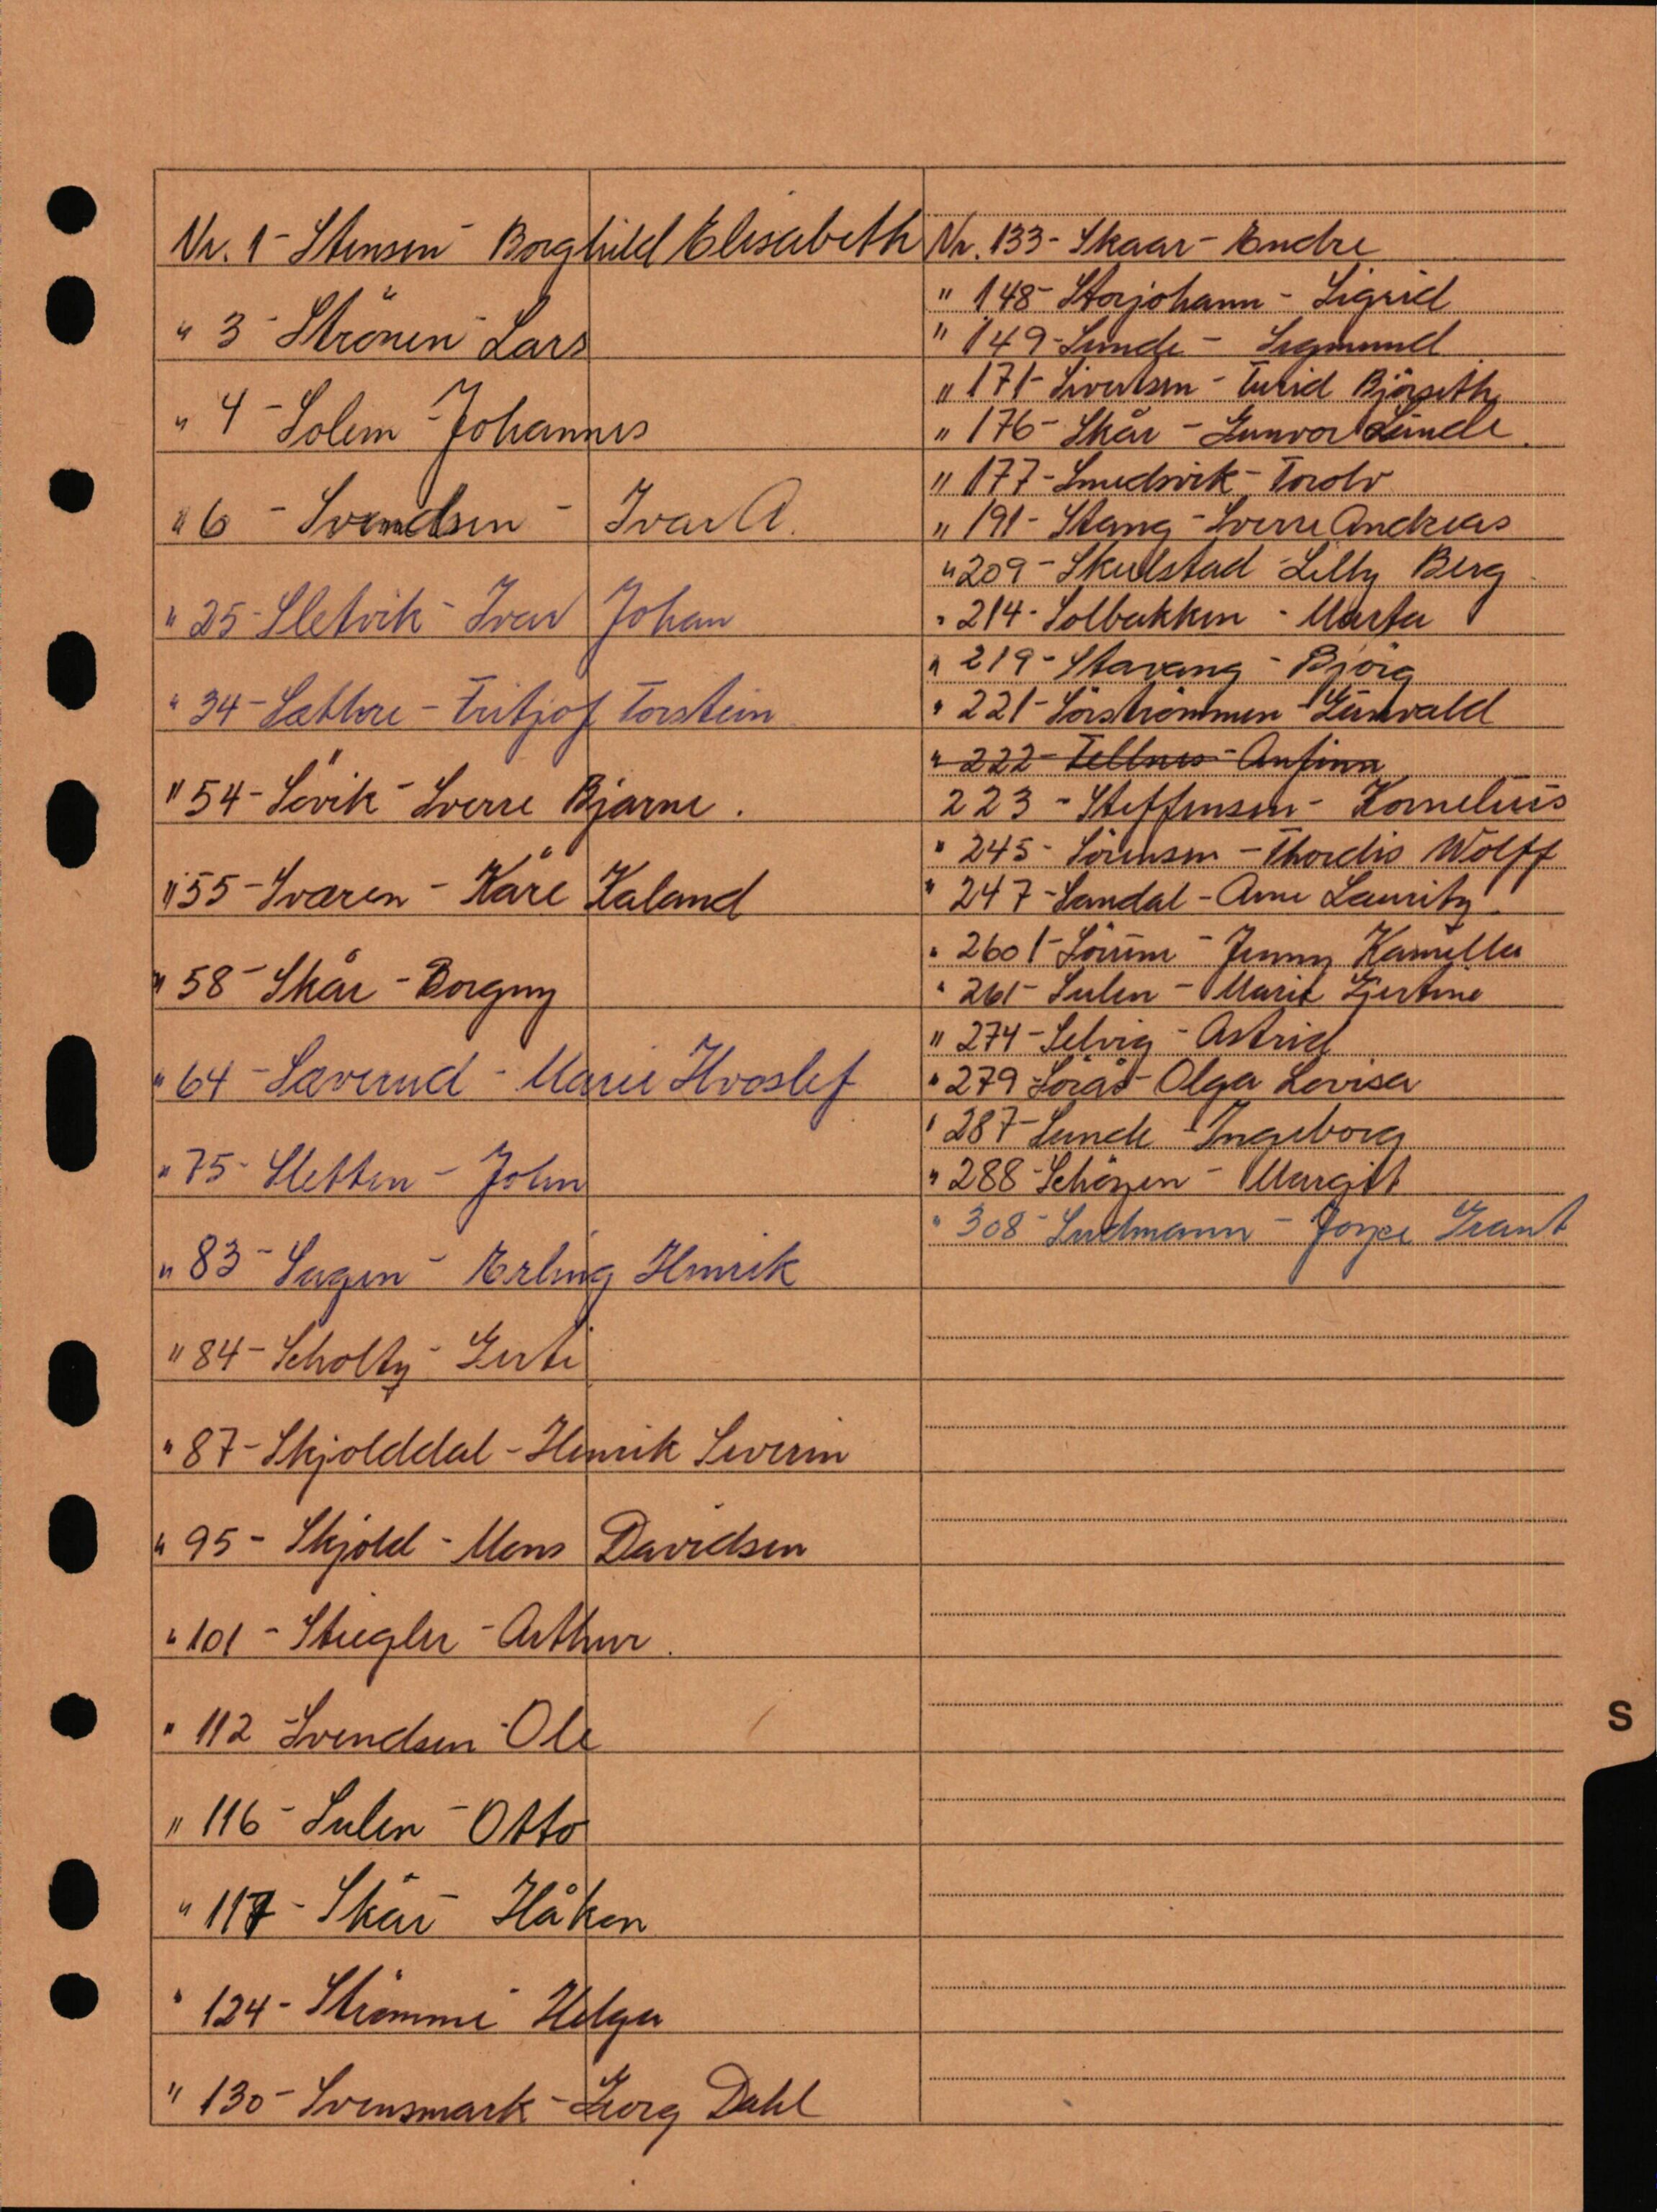 Nr. 1 - Stensen - Borghild Elisabeth
" 3 - Strönen - Lars
" 4 - Solem - Johannes
" 6 - Svendsen - Ivar A.
" 25 - Sletvik - Ivar Johan
" 34 - Sæthre - Fritjof Torstein
" 54 - Sövik - Sverre Bjarne.
" 55 - Sværen - Kåre Kaland
" 58 - Skår - Borgny
" 64 - Sæverud - Marie Hvoslef
" 75 - Sletten - John
" 83 - Sagen - Erling Henrik
" 84 - Scholtz - Gerti
" 87 - Skjolddal - Henrik Severin
" 95 - Skjold - Mons Davidsen
" 101 - Stiegler - Arthur.
" 112 - Svendsen - Ole
" 116 - Sulen - Otto
" 117 - Skår - Håkon
" 124 - Strömme - Helga
" 130 - Svensmark - Georg Dahl
Nr. 133 - Skaar - Endre
" 148 - Storjohann - Sigrid
" 149 - Sunde - Sigmund
" 171 - Sivertsen - Turid Björseth
" 176 - Skår - Gunvor Sunde.
" 177 - Smedsvik - Torolv
" 191 - Stang - Sverre Andreas
" 209 - Skulstad - Lilly Berg
" 214 - Solbakken - Marta
" 219 - Stavang - Björg
" 221 - Sörströnmen - Gunvald
" 222 - Tellnes - Anfinn
223 - Steffensen - Kornelius
" 245 - Sörensen - Thordis Wolff
" 247 - Sandal - Arne Lauritz
" 260 - Jenny Kamilla
" 261 - Sulen - Marie Gjertine
" 274 - Selvig - Astrid
" 279 - Sörås - Olga Lovisa
" 287 - Sunde - Ingeborg
" 288 - Schöyen - Margit
" 308 - Sudmann - Joyce Grant
S